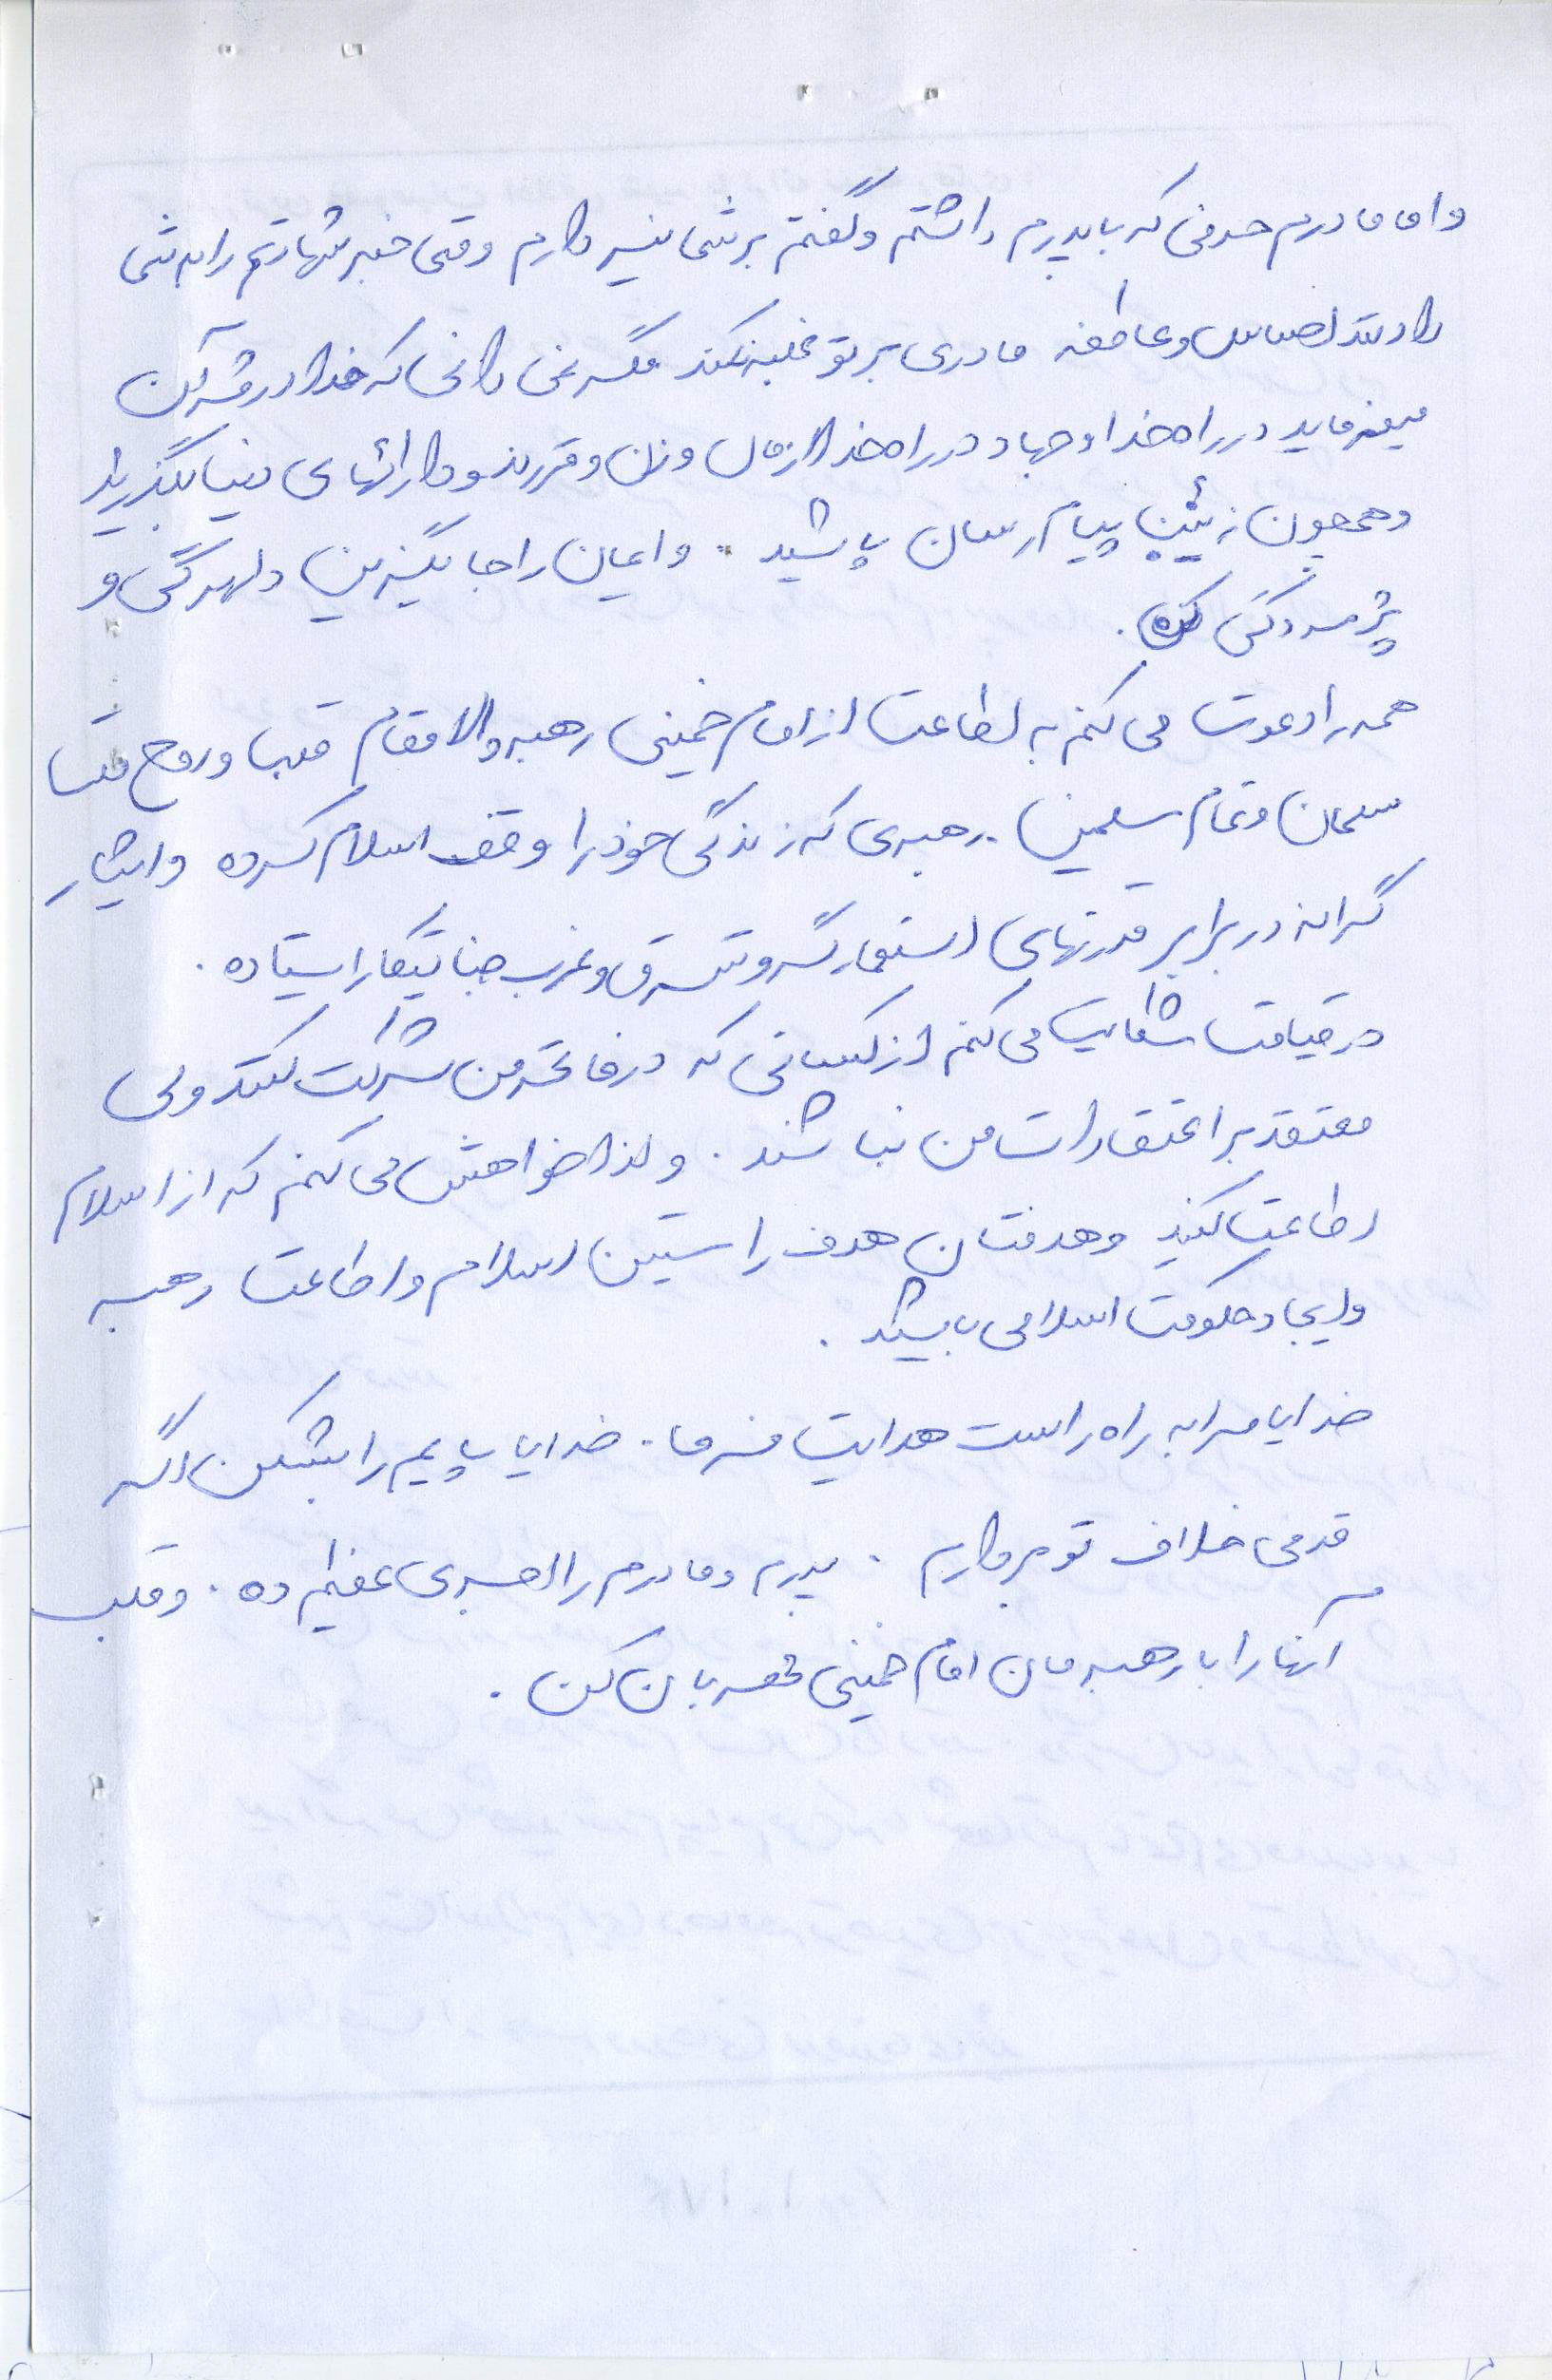 و اما مادرم حرفی که با پدرم داشتم و گفتم بر شما نیز دارم وقتی خبر شهادتم را به شما
دادند احساس و عاطفه مادری بر تو غلبه نکند مگر نمی دانی که خدا در قرآن
میفرماید در راه خدا و جهاد در راه خدا از مال و زن و فرزند و دارائیهای دنیا بگذرید
و همچون زینب پیام رسان باشید . و ایمان را جایگزین دلهرگی و
پژمردگی کن .
همه را دعوت می کنم به اطاعت از امام خمینی رهبر والا مقام قلب و روح ملت
مسلمان و تمام مسلمین . رهبری که زندگی خود را وقف اسلام کرده و ایثار
گرانه در برابر قدرتهای استعمارگر و شرق و غرب جنایتکار ایستاده .
در قیامت شکایت می کنم از کسانی که در فاتحه من شرکت کنند ولی
معتقد بر اعتقادات من نباشند . و لذا خواهش می کنم که از اسلام
اطاعت کنید و هدفتان هدف راستین اسلام و اطاعت رهبر
و ایجاد حکومت اسلامی باشد .
خدایا مرا به راه راست هدایت فرما . خدایا پایم را بشکن اگر
قدمی خلاف تو بردارم . پدرم و مادرم را صبری عظیم ده . و قلب
آنها را با رهبرمان امام خمینی مهربان کن .